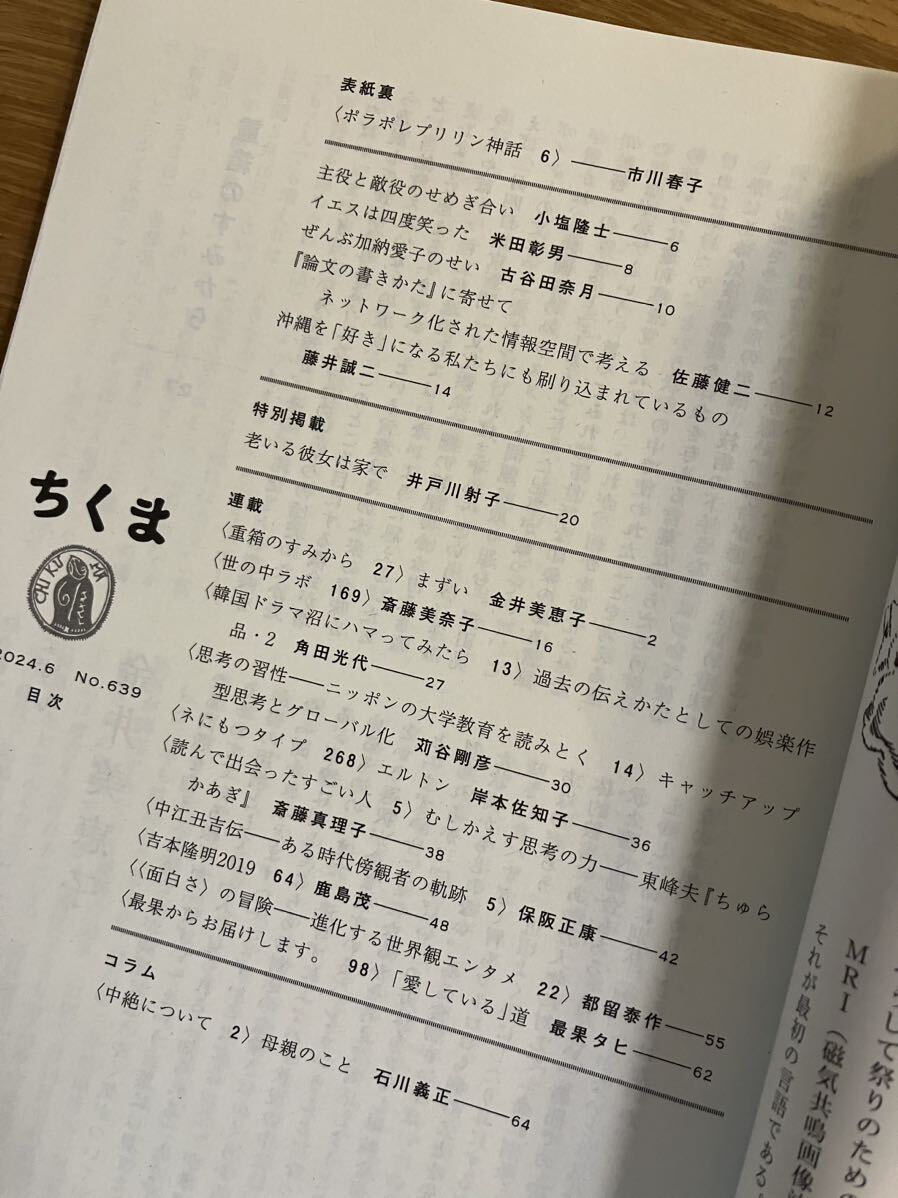 表紙裏
〈ポラポレプリリン神話 6〉——市川春子
主役と敵役のせめぎ合い 小塩隆士——6
イエスは四度笑った 米田彰男——8
ぜんぶ加納愛子のせい 古谷田奈月——10
『論文の書きかた』に寄せて
ネットワーク化された情報空間で考える 佐藤健二——12
沖縄を「好き」になる私たちにも刷り込まれているもの
藤井誠二——14
特別掲載
老いる彼女は家で 井戸川射子——20
連載
〈重箱のすみから 27〉まずい 金井美恵子——2
〈世の中ラボ 169〉斎藤美奈子——16
〈韓国ドラマ沼にハマってみたら 13〉過去の伝えかたとしての娯楽作
品・2 角田光代——27
〈思考の習性——ニッポンの大学教育を読みとく 14〉キャッチアップ
型思考とグローバル化 苅谷剛彦——30
〈ネにもつタイプ 268〉エルトン 岸本佐知子——36
〈読んで出会ったすごい人 5〉むしかえす思考の力——東峰夫『ちゅら
かあぎ』 斎藤真理子——38
〈中江丑吉伝——ある時代傍観者の軌跡 5〉保阪正康——42
〈吉本隆明2019 64〉鹿島茂——48
〈〈面白さ〉の冒険——進化する世界観エンタメ 22〉都留泰作——55
〈最果からお届けします。 98〉「愛している」道 最果タヒ——62
コラム
〈中絶について 2〉母親のこと 石川義正——64
ちくま
CHIKUMA
2024.6 No.639
目次
して祭りのための
MRI（磁気共鳴画像
それが最初の言語である